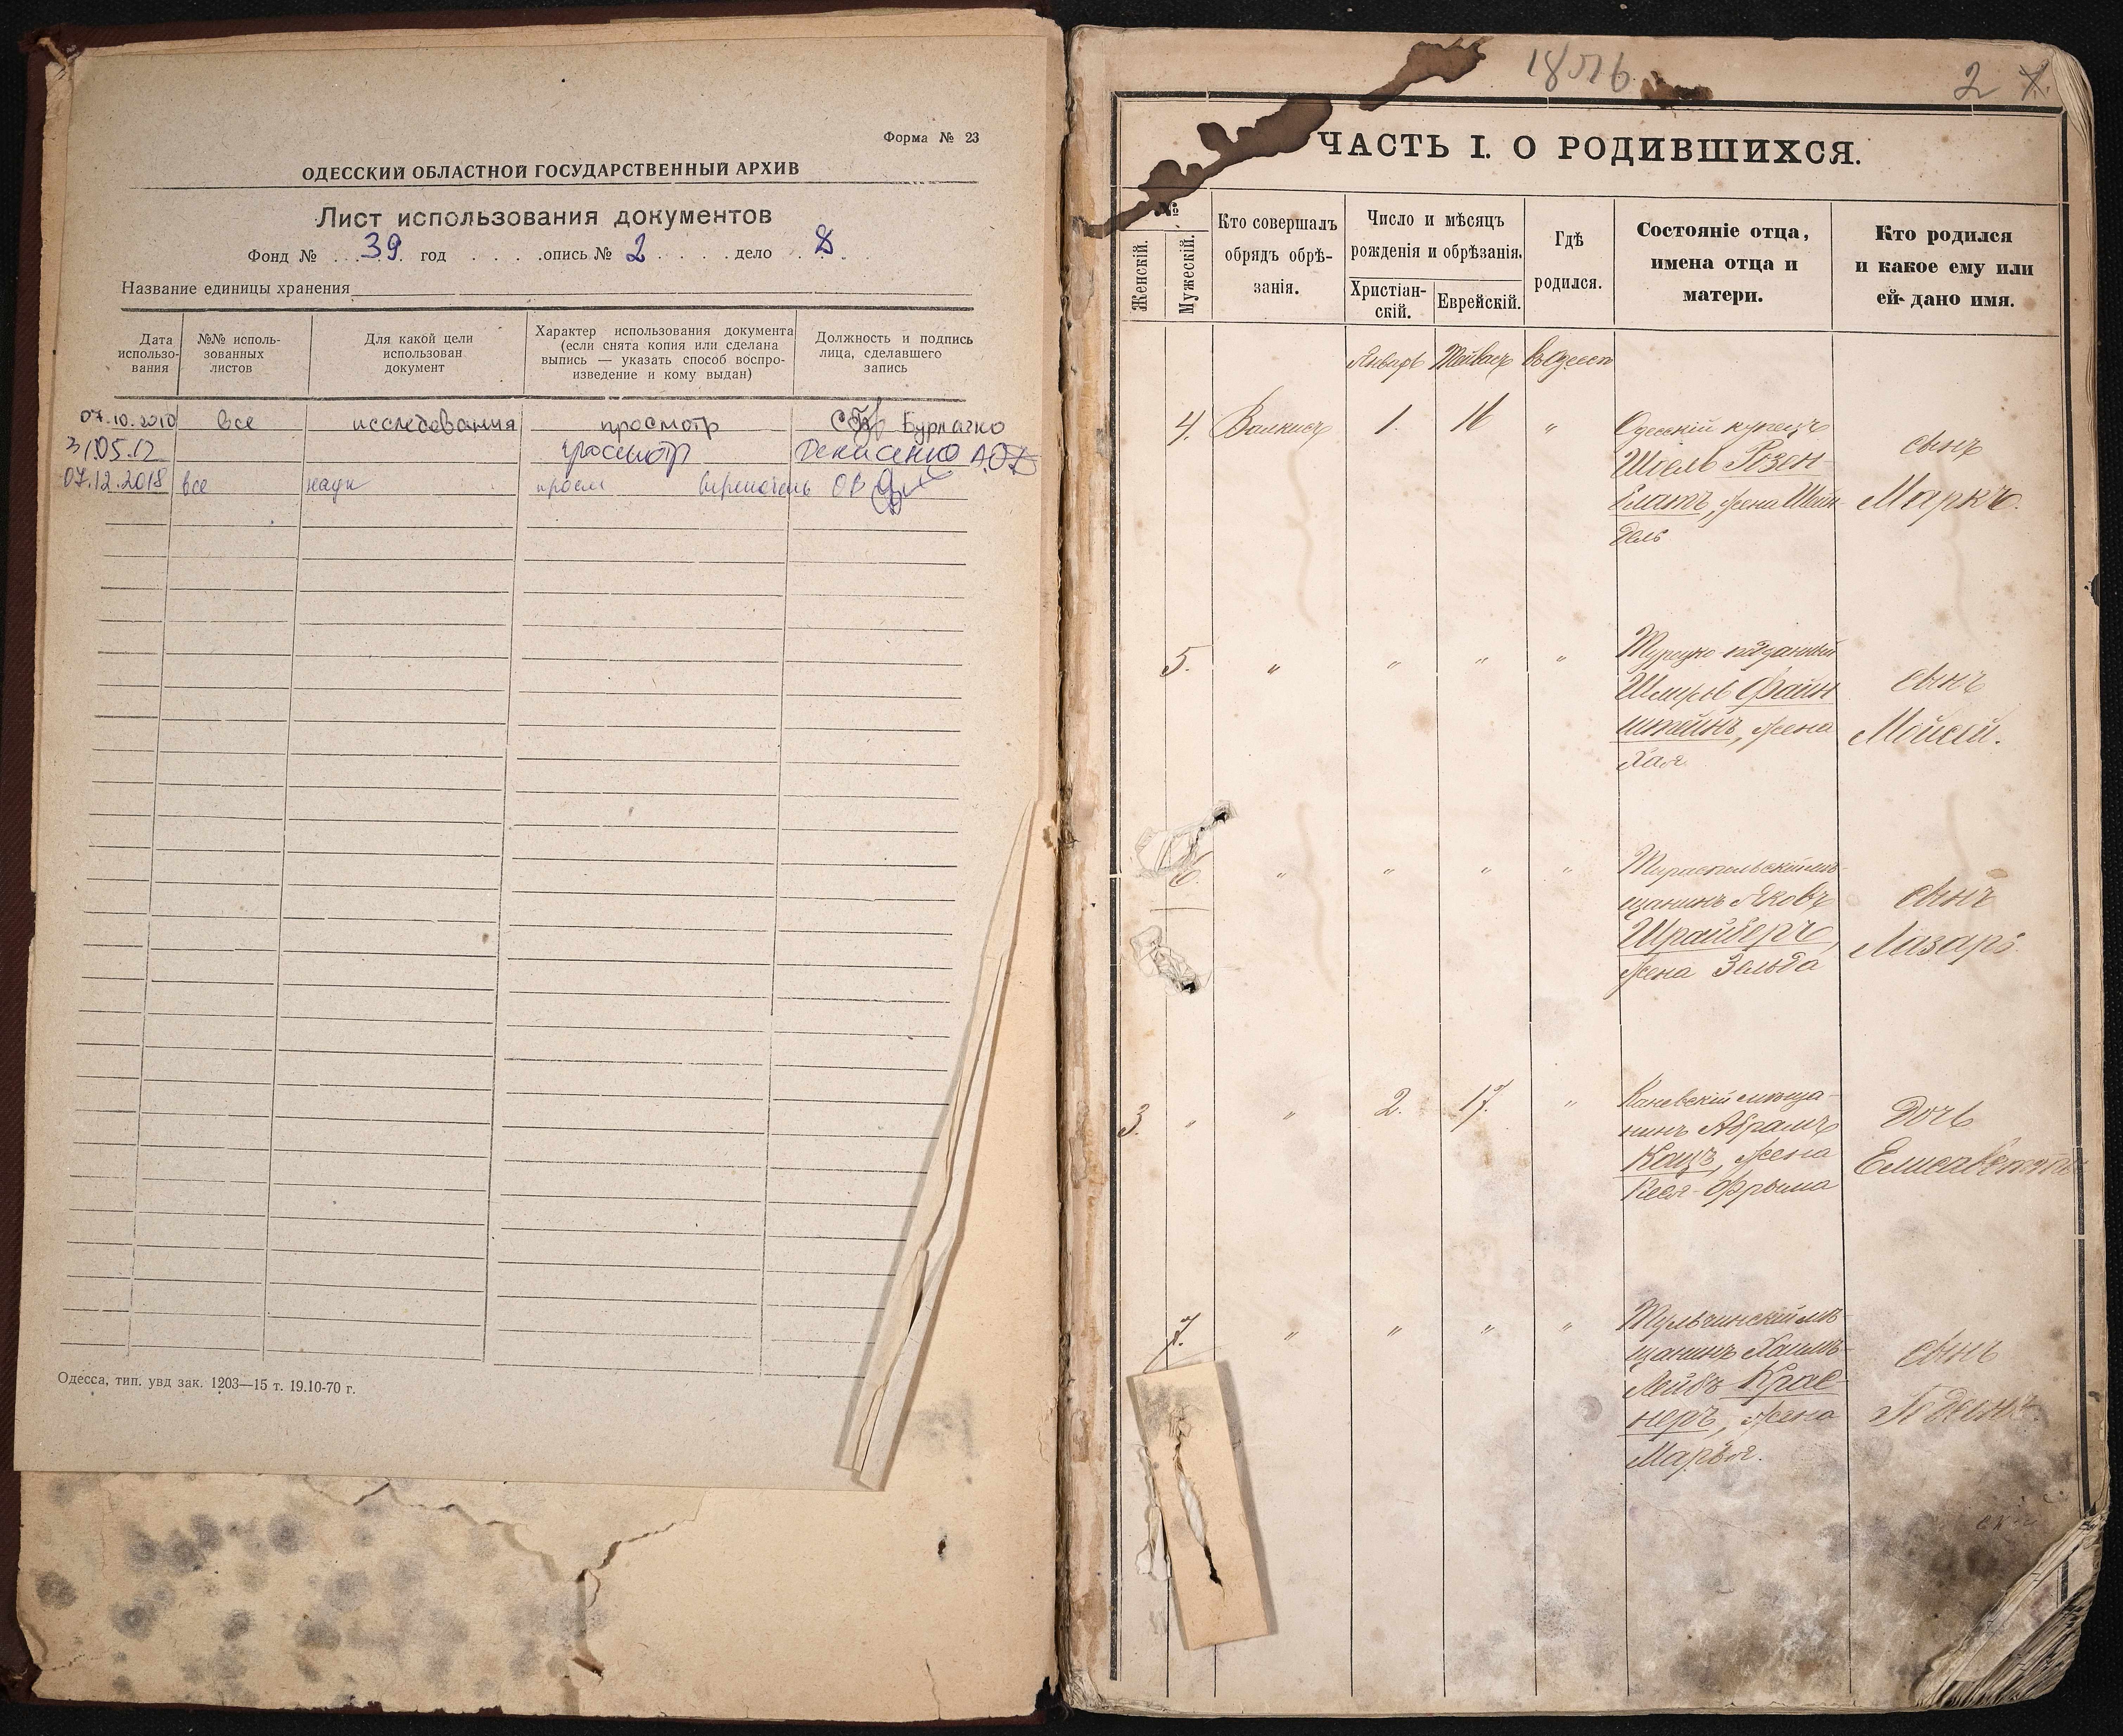 Форма № 23
ОДЕССКИЙ ОБЛАСТНОЙ ГОСУДАРСТВЕННЫЙ АРХИВ
Лист использования документов
Фонд № 39 год опись № 2 дело 8
Название единицы хранения
Дата использо-вания
№№ исполь-зованных листов
Для какой цели использован документ
Характер использования документа (если снята копия или сделана выпись — указать способ воспро-изведение и кому выдан)
Должность и подпись лица, сделавшего запись
07.10.2010 все исследования просмотр Бурлачко
31.05.12 просмотр Денисенко
07.12.2018 все
Одесса, тип. увд зак. 1203—15 т. 19.10-70 г.
1876
2
ЧАСТЬ I. О РОДИВШИХСЯ.
№
Женскій.
Мужескій.
Кто совершалъ обрядъ обрѣ-занія.
Число и мѣсяцъ рожденія и обрѣзанія.
Христіан-скій.
Еврейскій.
Гдѣ родился.
Состояніе отца, имена отца и матери.
Кто родился и какое ему или ей дано имя.
Январь
4. 1. 16 "
Одесскій купецъ
Розен-
блатъ, жена Шейн-
дель
сынъ
Маркъ.
5. " " " "
Турецко-подданный
Файн
штейнъ, жена
Хая
сынъ
Мойсей.
6. " " " "
Тираспольскій мѣ-
щанинъ Яковъ
Шрайберъ,
жена Зельда
сынъ
Лазарь.
3. " " 2. 17. "
Каневскій мѣща-
нинъ Абрамъ
Кацъ, жена
Фрыма
дочь
Елисавета
7. " " " "
Тульчинскій мѣ-
щанинъ Хаимъ-
Лейбъ Крас-
неръ, жена
Марья.
сынъ